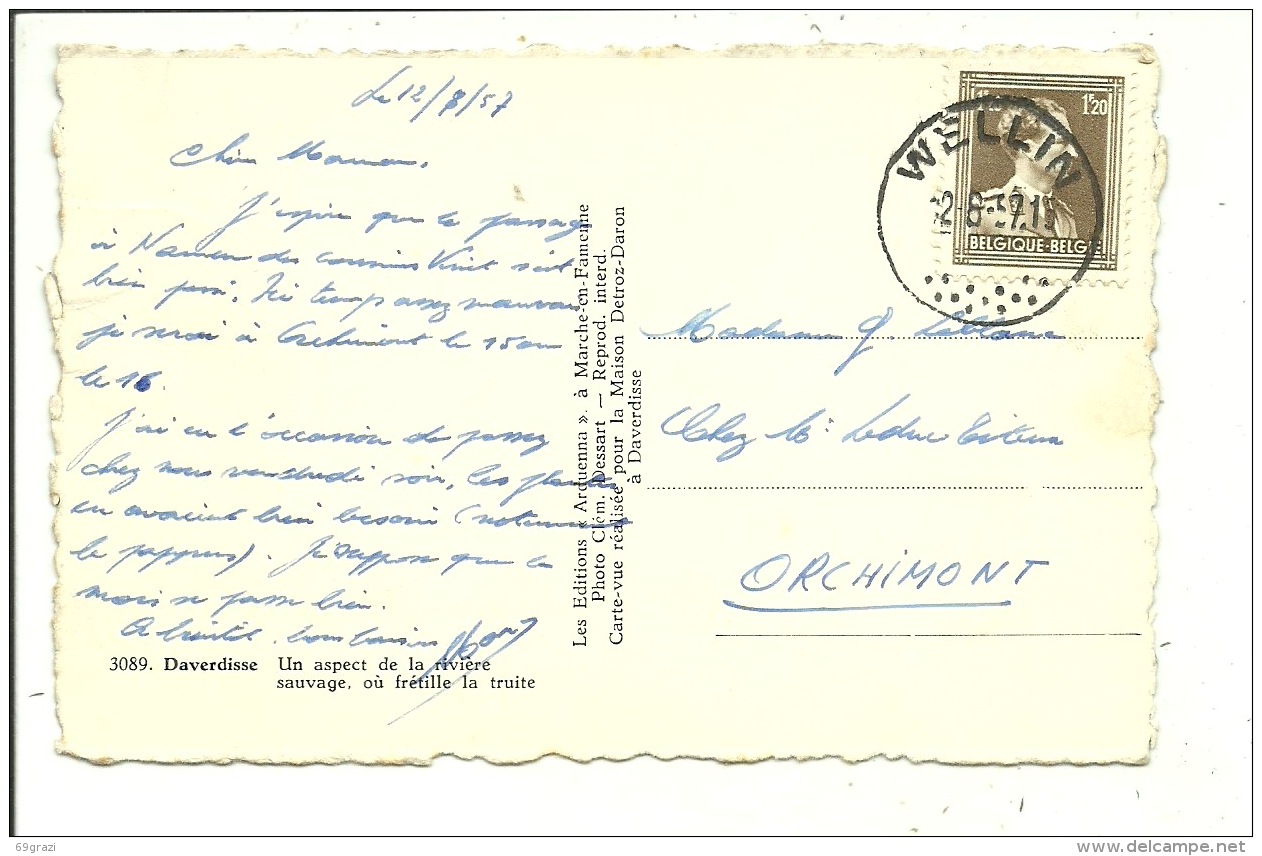 Le 12/8/57
Chère Maman,
J'espère que le passage
à Namur des cousins soit
bien passé. Ici temps assez mauvais
je serai à Orchimont le 15 ou
le 16.
J'ai eu l'occasion de passer
chez nous vendredi soir, les plantes
en avaient bien besoin (notamment
le papyrus). Je suppose que le
mois se passe bien.
A bientôt, bons baisers
3089. Daverdisse Un aspect de la rivière
sauvage, où frétille la truite
Les Editions « Arduenna ». à Marche-en-Famenne
Photo Clém. Dessart — Reprod. interd.
Carte-vue réalisée pour la Maison Detroz-Daron
à Daverdisse
1F20
BELGIQUE-BELGIE
WELLIN
Madame J. Leblanc
Chez Mr Leduc
ORCHIMONT
69grazi
www.delcampe.net